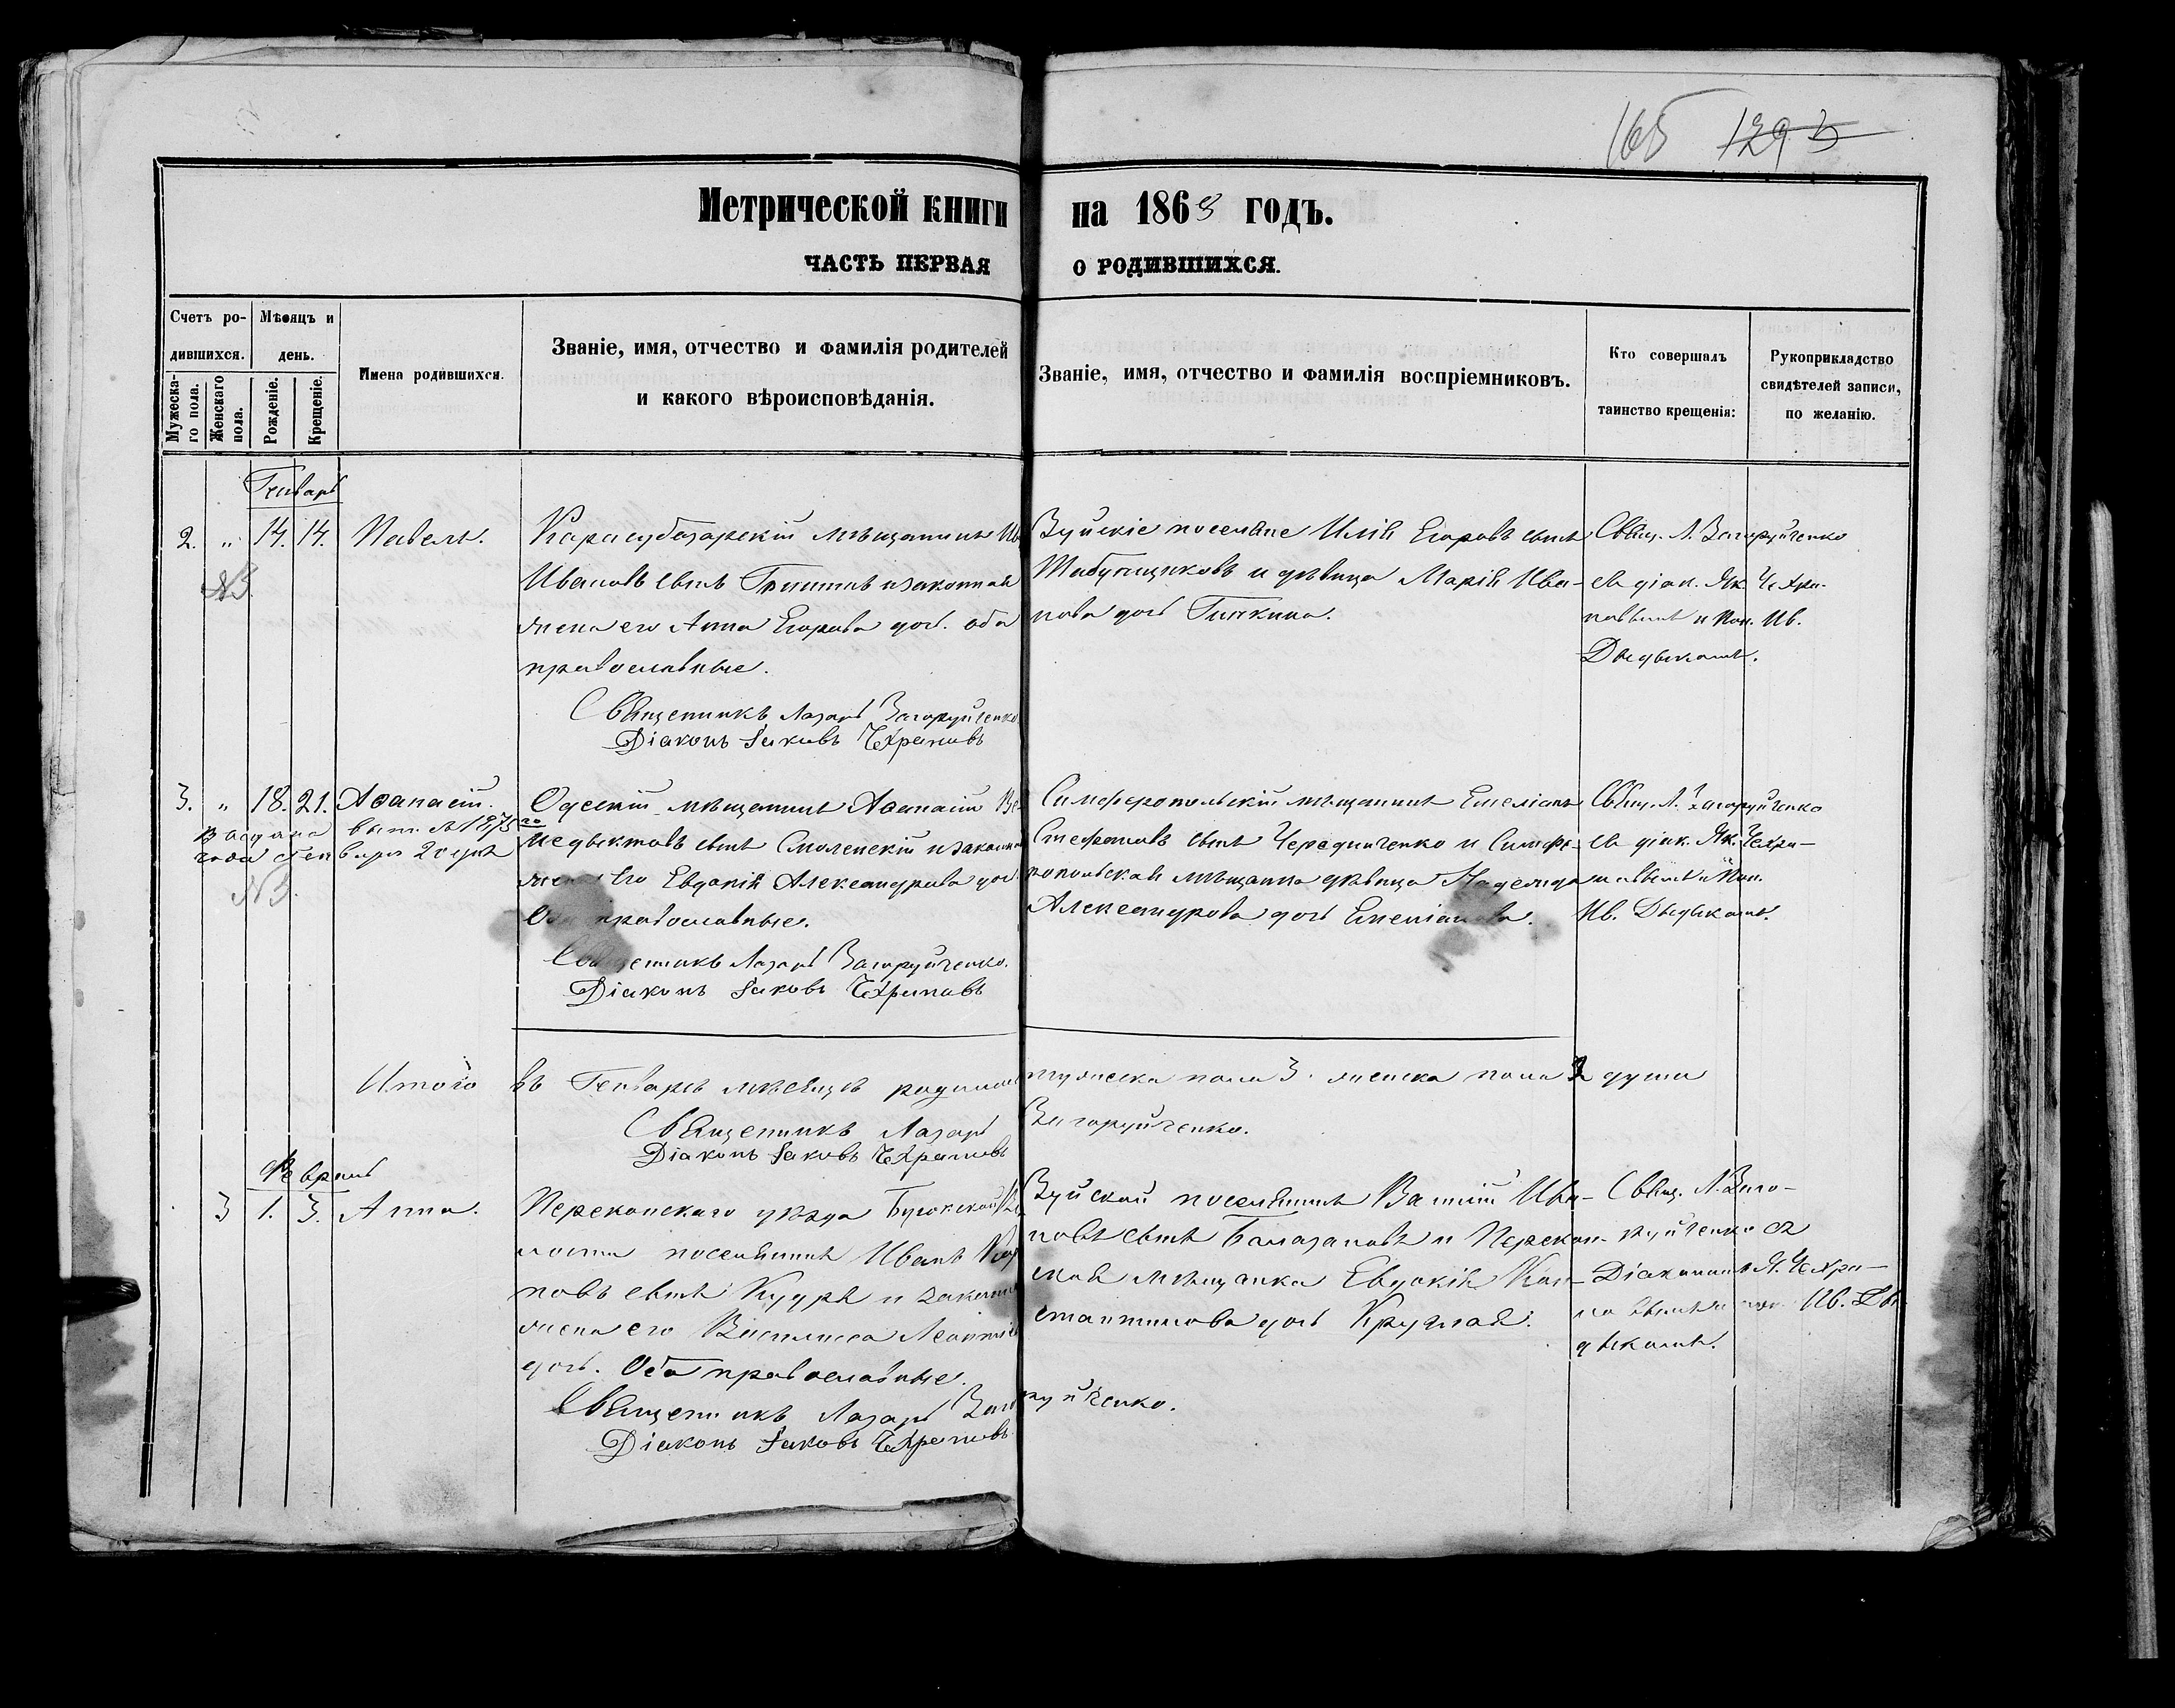 165 1293
Метрической книги на 1868 годъ.
ЧАСТЬ ПЕРВАЯ О РОДИВШИХСЯ.
Счетъ родившихся.
Мѣсяцъ и день.
Мужескаго пола.
Женскаго пола.
Рожденіе.
Крещеніе.
Имена родившихся.
Званіе, имя, отчество и фамилія родителей
и какого вѣроисповѣданія.
Званіе, имя, отчество и фамилія воспріемниковъ.
Кто совершалъ
таинство крещенія:
Рукоприкладство
свидѣтелей записи,
по желанію.
Генварь
2. „ 14. 14. Павелъ.
Карасубазарскій мѣщанинъ
Ивановъ сынъ и законная
жена его Анна Егорова доч. оба
православные.
Священникъ Лазарь Загоруйченко
Діаконъ Іаковъ Чехрановъ
Зуйскіе поселяне Илія Егоровъ сынъ
Табунщиковъ и дѣвица Марія Ива-
нова дочь
Свящ. Л. Загоруйченко
съ діак. Як. Чехра-
новымъ и пон. Ив.
Дыдыкомъ.
3. „ 18. 21. Аѳанасій.
Выдана вып. 1875 го
года Генваря 20 дня
№3.
Одесскій мѣщанинъ Аѳанасій Ве-
недыктовъ сынъ Смоленскій и законная
жена его Евдокія Александрова доч.
Оба православные.
Священникъ Лазарь Загоруйченко.
Діаконъ Іаковъ Чехрановъ
Симферопольскій мѣщанинъ Емеліанъ
Стефановъ сынъ Чередниченко и Симфе-
ропольская мѣщанка дѣвица Надежда
Александрова дочь Емеліанова.
Свящ. Л. Загоруйченко
съ діак. Як. Чехра-
новымъ и пон.
Ив. Дыдыкомъ.
Итого въ Генварѣ мѣсяцѣ родилось мужеска пола 3. женска пола 2 души
Священникъ Лазарь Загоруйченко.
Діаконъ Іаковъ Чехрановъ
Февраль
3 1. 3. Анна.
Перекопскаго уѣзда
лости поселянинъ Иванъ
новъ сынъ Кудря и законная
жена его Василиса Леонтіева
дочь. Оба православные.
Священникъ Лазарь Загоруйченко.
Діаконъ Іаковъ Чехрановъ
Зуйскій поселянинъ Василій Ива-
новъ сынъ Балазановъ и Перекоп-
ская мѣщанка Евдокія Кон-
стантинова дочь Круглая.
Свящ. Л. Заго-
руйченко съ
Діакономъ Я. Чехра-
новымъ и пон. Ив. Ды-
дыкомъ.